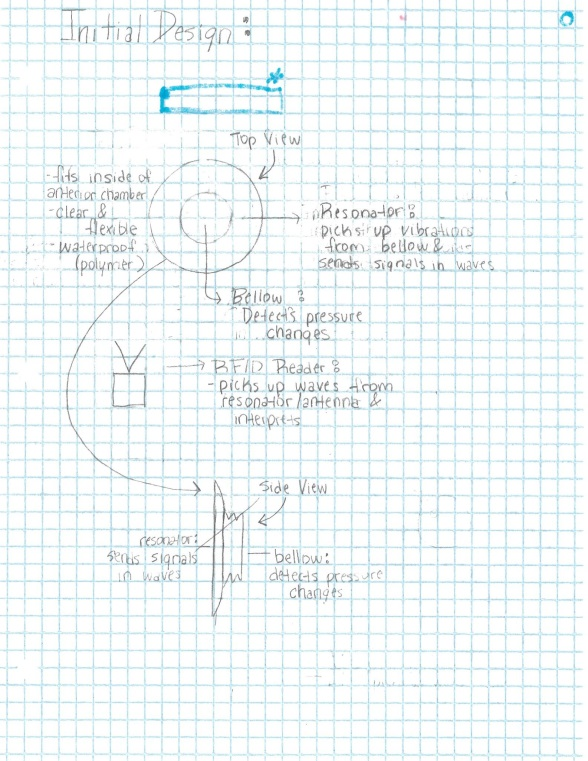 Initial Design:
Top View
-fits inside of
anterior chamber
-clear &
flexible
-waterproof
(polymer)
Resonator:
picks up vibrations
from bellow &
sends signals in waves
Bellow:
Detects pressure
changes
RFID Reader:
-picks up waves from
resonator/antenna &
interprets
Side View
resonator:
sends signals
in waves
bellow:
detects pressure
changes